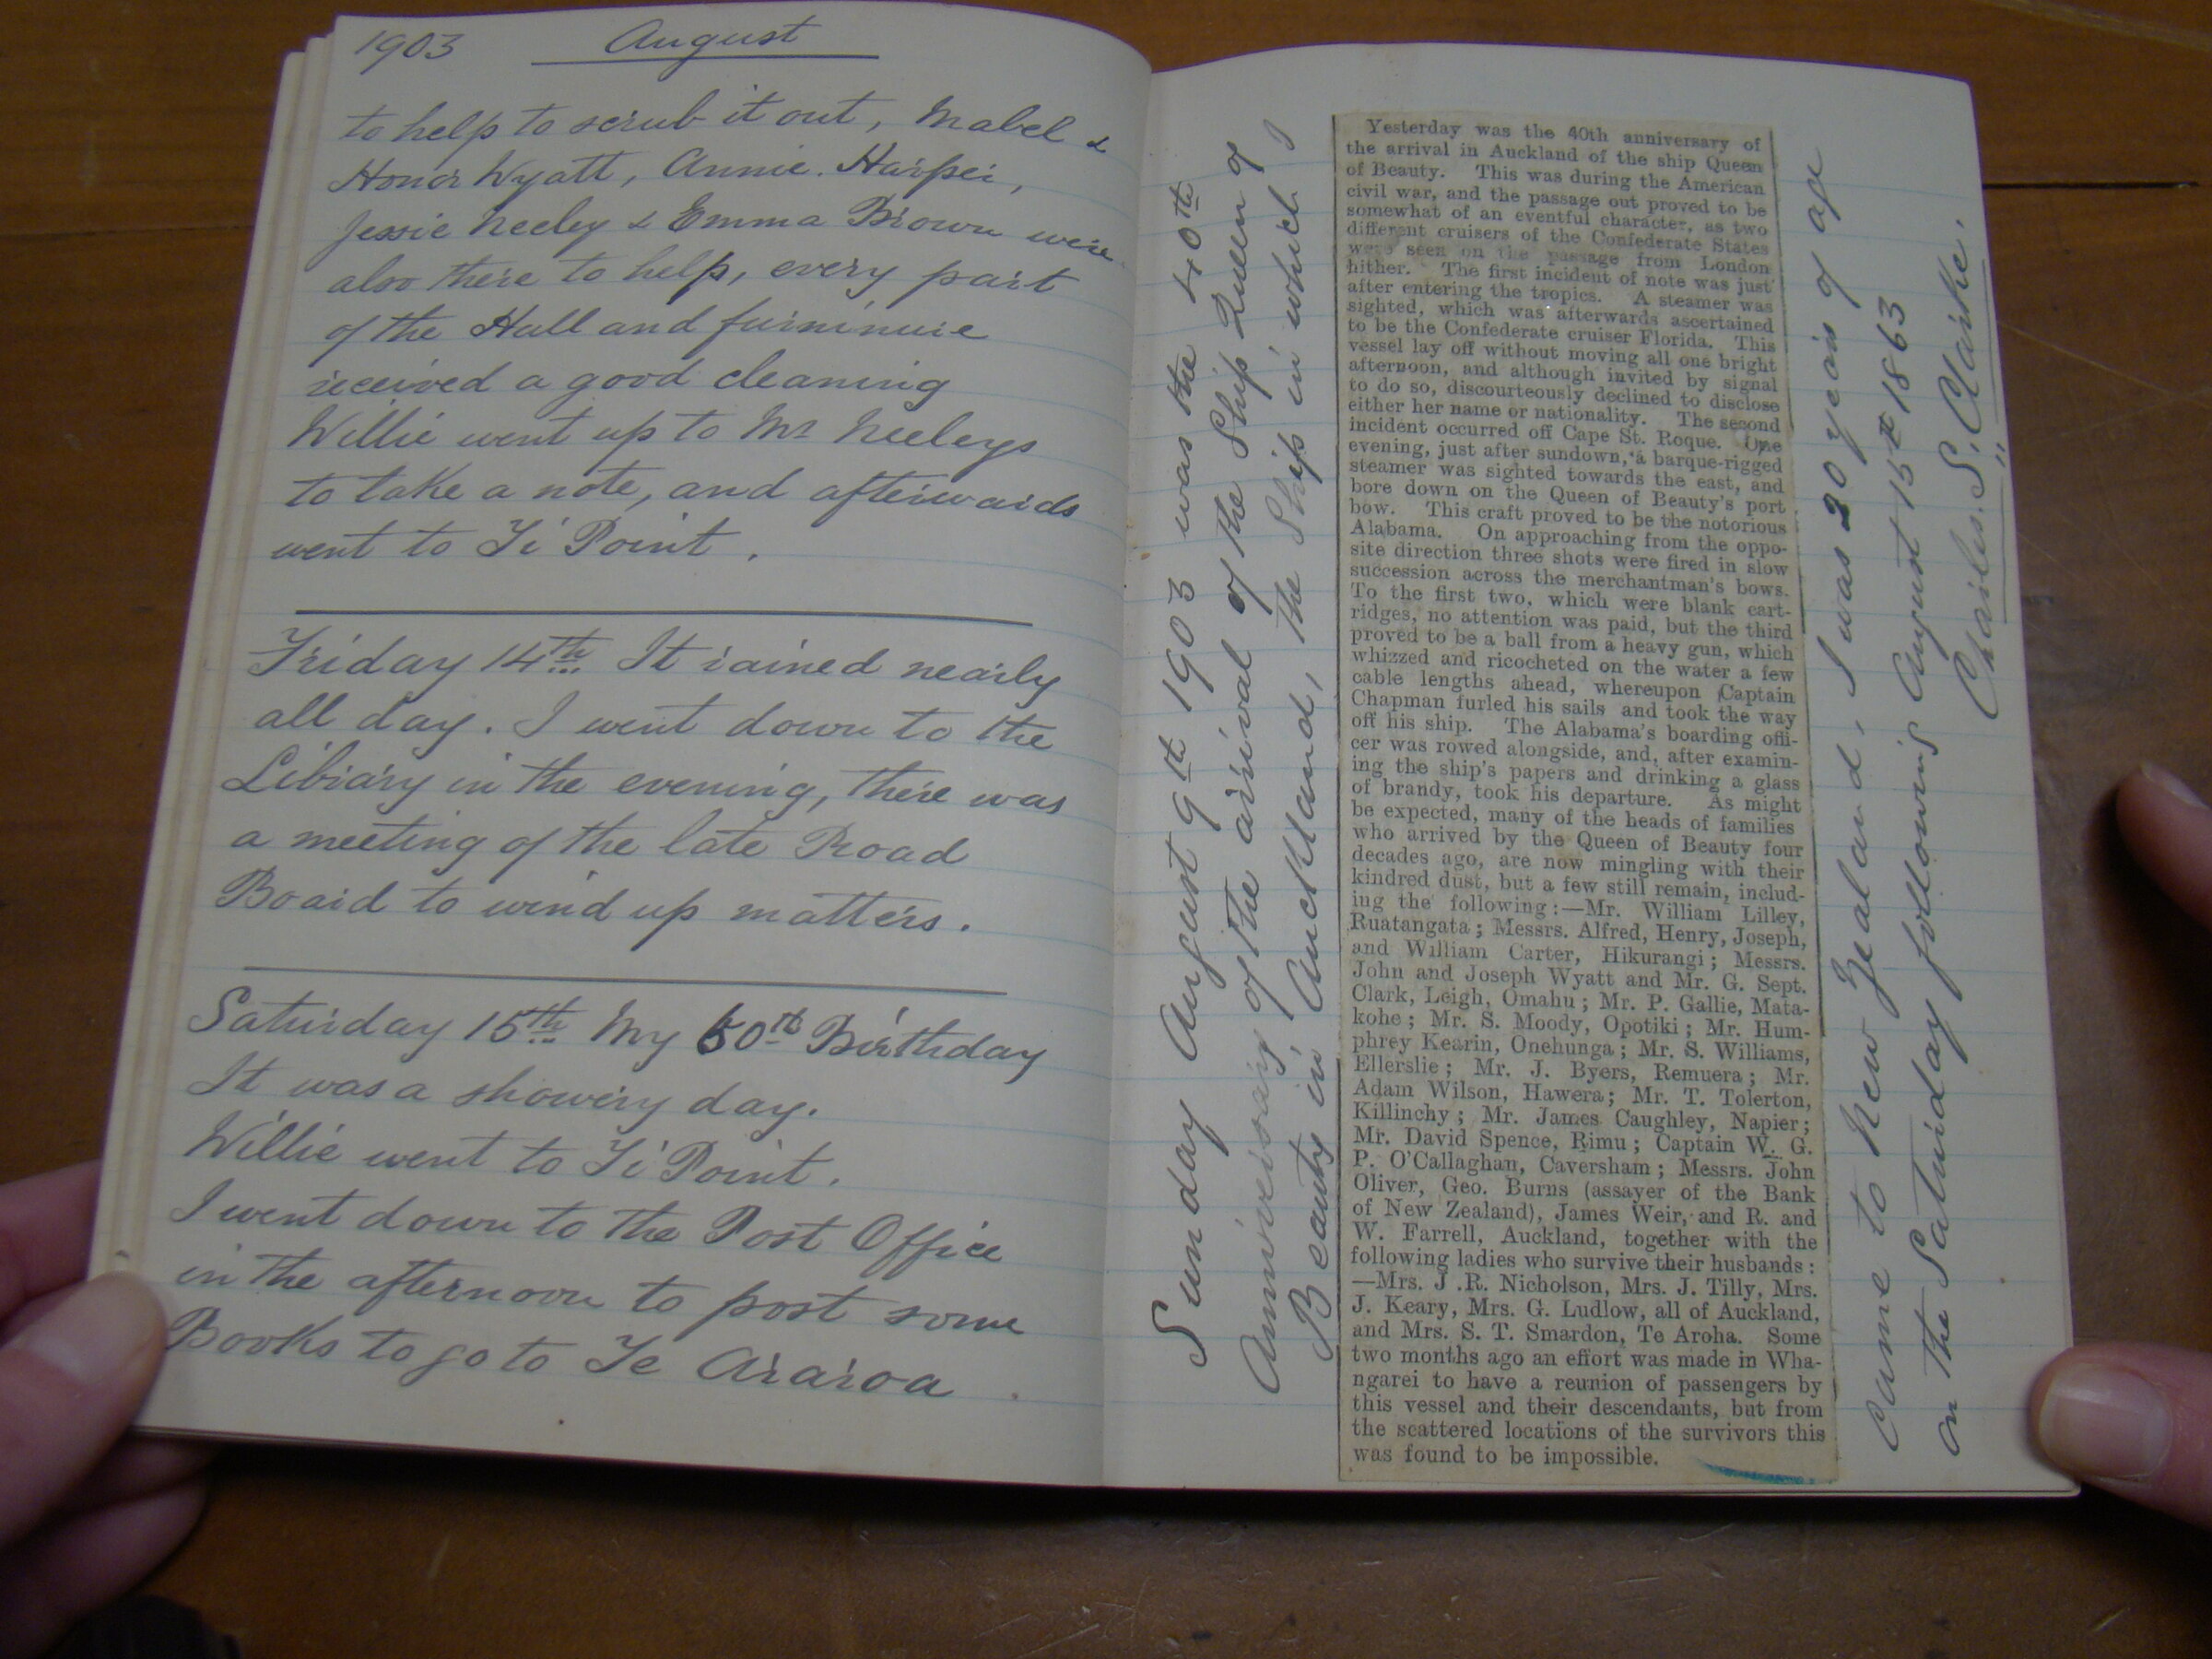 1903 August
to help to scrub it out, Mabel &
Honor Wyatt, Annie. Harper,
Jessie Neeley & Emma Brown were
also there to help, every part
of the Hall and furninure
received a good cleaning
Willie went up to Mr Neeleys
to take a note, and afterwards
went to Ti Point.
Friday 14th It rained nearly
all day. I went down to the
Library in the evening, there was
a meeting of the late Road
Board to wind up matters.
Saturday 15th My 60th Birthday
It was a showery day.
Willie went to Ti Point.
I went down to the Post Office
in the afternoon to post some
Books to go to Te Araroa.
Sunday August 9th 1903 was the 40th
Anniversary of the arrival of the Ship Queen of
Beauty in Auckland, the Ship in which I
Yesterday was the 40th anniversary of
the arrival in Auckland of the ship Queen
of Beauty. This was during the American
civil war, and the passage out proved to be
somewhat of an eventful character, as two
different cruisers of the Confederate States
were seen on the passage from London
hither. The first incident of note was just
after entering the tropics. A steamer was
sighted, which was afterwards ascertained
to be the Confederate cruiser Florida. This
vessel lay off without moving all one bright
afternoon, and although invited by signal
to do so, discourteously declined to disclose
either her name or nationality. The second
incident occurred off Cape St. Roque. One
evening, just after sundown, a barque-rigged
steamer was sighted towards the east, and
bore down on the Queen of Beauty's port
bow. This craft proved to be the notorious
Alabama. On approaching from the oppo-
site direction three shots were fired in slow
succession across the merchantman's bows.
To the first two, which were blank cart-
ridges, no attention was paid, but the third
proved to be a ball from a heavy gun, which
whizzed and ricocheted on the water a few
cable lengths ahead, whereupon Captain
Chapman furled his sails and took the way
off his ship. The Alabama's boarding offi-
cer was rowed alongside, and, after examin-
ing the ship's papers and drinking a glass
of brandy, took his departure. As might
be expected, many of the heads of families
who arrived by the Queen of Beauty four
decades ago, are now mingling with their
kindred dust, but a few still remain, includ-
ing the following:—Mr. William Lilley,
Ruatangata; Messrs. Alfred, Henry, Joseph,
and William Carter, Hikurangi; Messrs.
John and Joseph Wyatt and Mr. G. Sept.
Clark, Leigh, Omahu; Mr. P. Gallie, Mata-
kohe; Mr. S. Moody, Opotiki; Mr. Hum-
phrey Kearin, Onehunga; Mr. S. Williams,
Ellerslie; Mr. J. Byers, Remuera; Mr.
Adam Wilson, Hawera; Mr. T. Tolerton,
Killinchy; Mr. James Caughley, Napier;
Mr. David Spence, Rimu; Captain W. G.
P. O'Callaghan, Caversham; Messrs. John
Oliver, Geo. Burns (assayer of the Bank
of New Zealand), James Weir, and R. and
W. Farrell, Auckland, together with the
following ladies who survive their husbands:
—Mrs. J .R. Nicholson, Mrs. J. Tilly, Mrs.
J. Keary, Mrs. G. Ludlow, all of Auckland,
and Mrs. S. T. Smardon, Te Aroha. Some
two months ago an effort was made in Wha-
ngarei to have a reunion of passengers by
this vessel and their descendants, but from
the scattered locations of the survivors this
was found to be impossible.
came to New Zealand, I was 20 years of age
on the Saturday following August 15th 1863
Charles. S. Clarke.